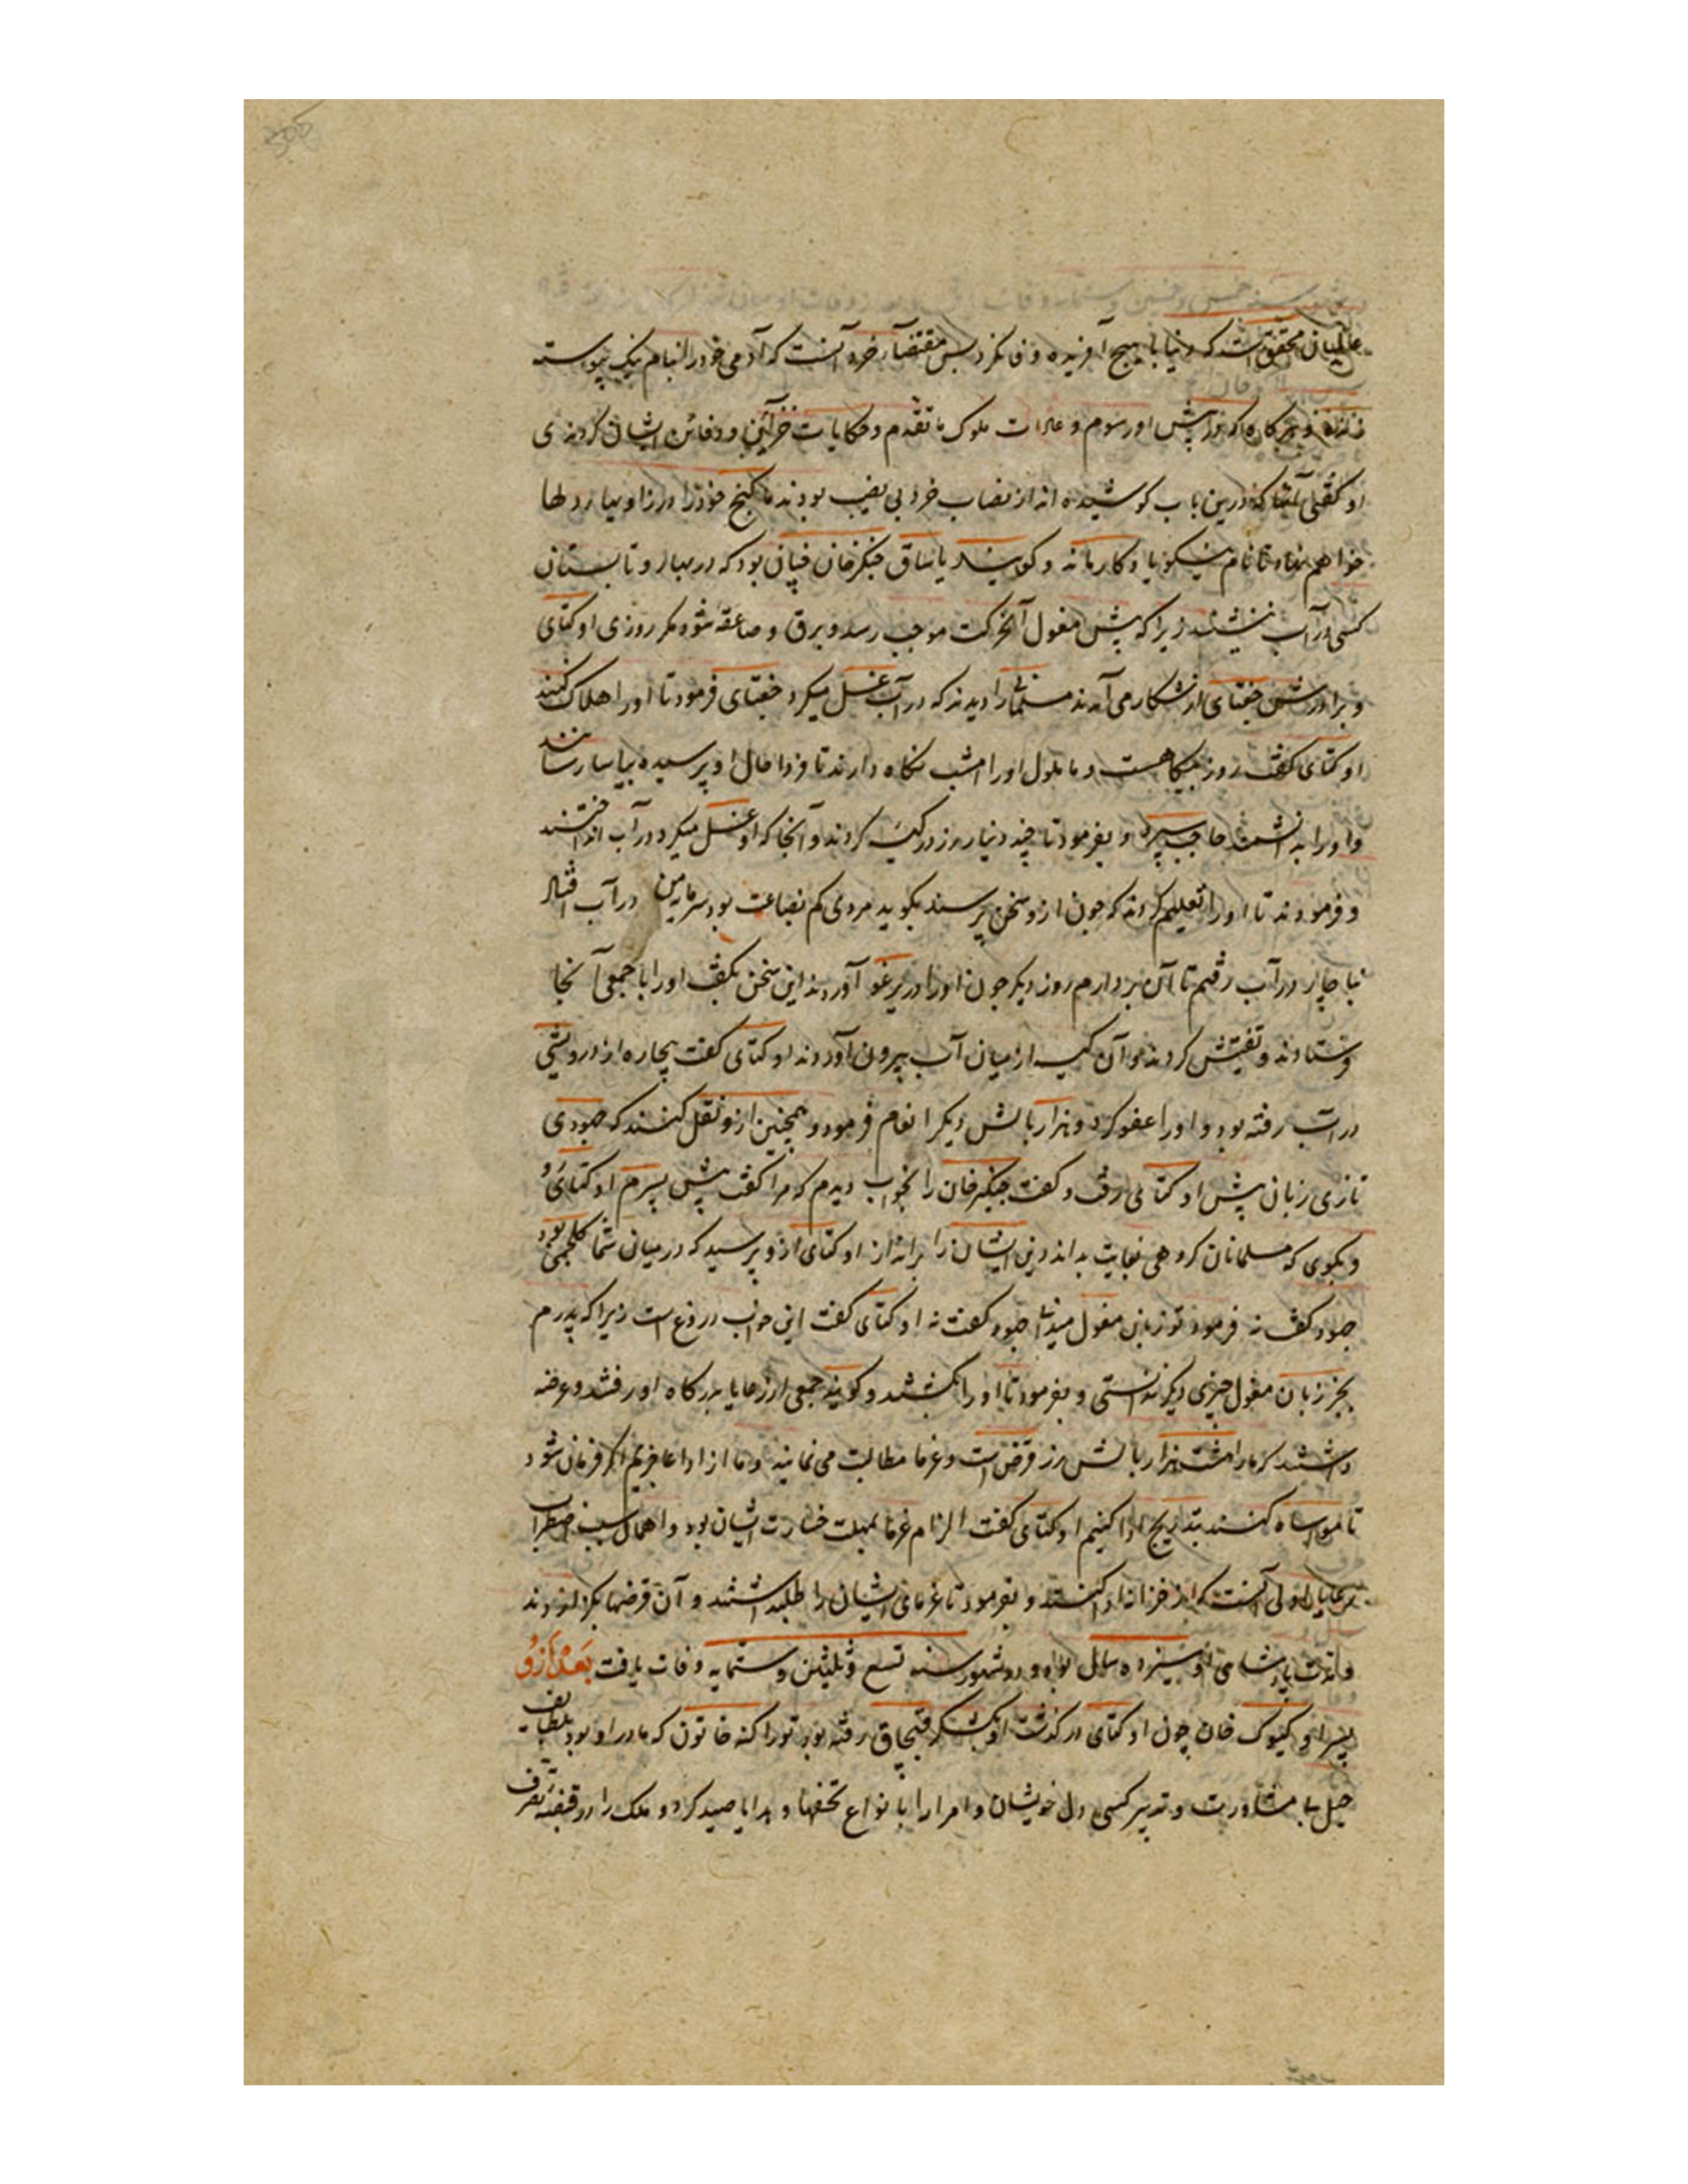 عالمیان محقق است که دنیا با هیچ آفریده وفا نکرد پس مقتضاء خرد آنست که آدمی خود را بنام نیک پیوسته
زنده و هرگاه که در پیش او رسوم و عادات ملوک ما تقدم و حکایات خزاین و دفائن ایشان کردندی
او گفتی آنها که درین باب کوشیده اند از نصاب خرد بی نصیب بودند ما گنج خود را در زوایاء دلها
خواهم نهاد تا نام نیکو یادگار ماند و گویند یاساق چنگزخان چنان بود که در بهار و تابستان
کسی در آب ننشیند زیرا که پیش مغول آن حرکت موجب رعد و برق و صاعقه شود مگر روزی اوکتای
و برادرش جغتای از شکار می آمدند مسلمانی را دیدند که در آب غسل میکرد جغتای فرمود تا او را هلاک کنند
اوکتای گفت روز بیگاهست و ما ملول او را امشب نگاه دارند تا فردا حال او پرسیده بیاسا رسانند
و او را به دانشمند حاجب سپرد و بفرمود تا چند دینار زر در کیسه کردند و آنجا که او غسل میکرد در آب انداختند
و فرمودند تا او را تعلیم کردند که چون ازو سخن پرسند بگوید مردی کم بضاعت بودم سرمایه من در آب افتاد
بناچار در آب رفتم تا آن بردارم روز دیگر چون او را در یرغو آوردند این سخن بگفت او را با جمعی آنجا
فرستادند و تفتیش کردند و آن کیسه از میان آب بیرون آوردند اوکتای گفت بیچاره از درویشی
در آب رفته بود و او را عفو کرد و هزار بالش دیگر انعام فرمود و همچنین ازو نقل کنند که جهودی
تازی زبان پیش اوکتای رفت و گفت چنگیزخان را بخواب دیدم که مرا گفت پیش پسرم اوکتای رو
و بگوی که مسلمانان گروهی بغایت بد اند دین ایشان را برانداز اوکتای ازو پرسید که در میان شما کلمجی بود
جهود گفت نه فرمود تو زبان مغول میدانی جهود گفت نه اوکتای گفت این خواب دروغ است زیرا که پدرم
بجز زبان مغول چیزی دیگر ندانستی و بفرمود تا او را بکشتند و گویند جمعی از رعایا بدرگاه او رفتند و عرضه
داشتند که ما را هشت هزار بالش زر قرض است و غرما مطالبت می نمایند و ما از ادا عاجزیم اگر فرمان شود
تا مواساه کنند بتدریج ادا کنیم اوکتای گفت الزام غرما بمهلت خسارت ایشان بود و اهمال سبب اضطراب
رعایا اولی آنست که از خزانه ادا کنند و بفرمود تا غرمای ایشان را طلب داشتند و آن قرضها بگزاردند
و مدت پادشاهی او سیزده سال بود و در شهور سنه تسع و ثلثین و ستمایه وفات یافت بعد ازو
پسر او کیوک خان چون اوکتای درگذشت او بلشکر قبچاق رفته بود توراکنه خاتون که مادر او بود بلطایف
حیل بی مشاورت و تدبیر کسی دل خویشان و امرا را بانواع تحفها و هدایا صید کرد و ملک را در قبضه تصرف